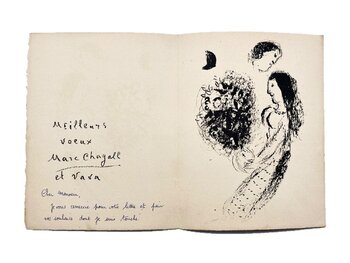 Meilleurs
voeux
Marc Chagall
et Vava
Cher Monsieur,
je vous remercie pour votre lettre et pour
vos voeux dont je suis touché.